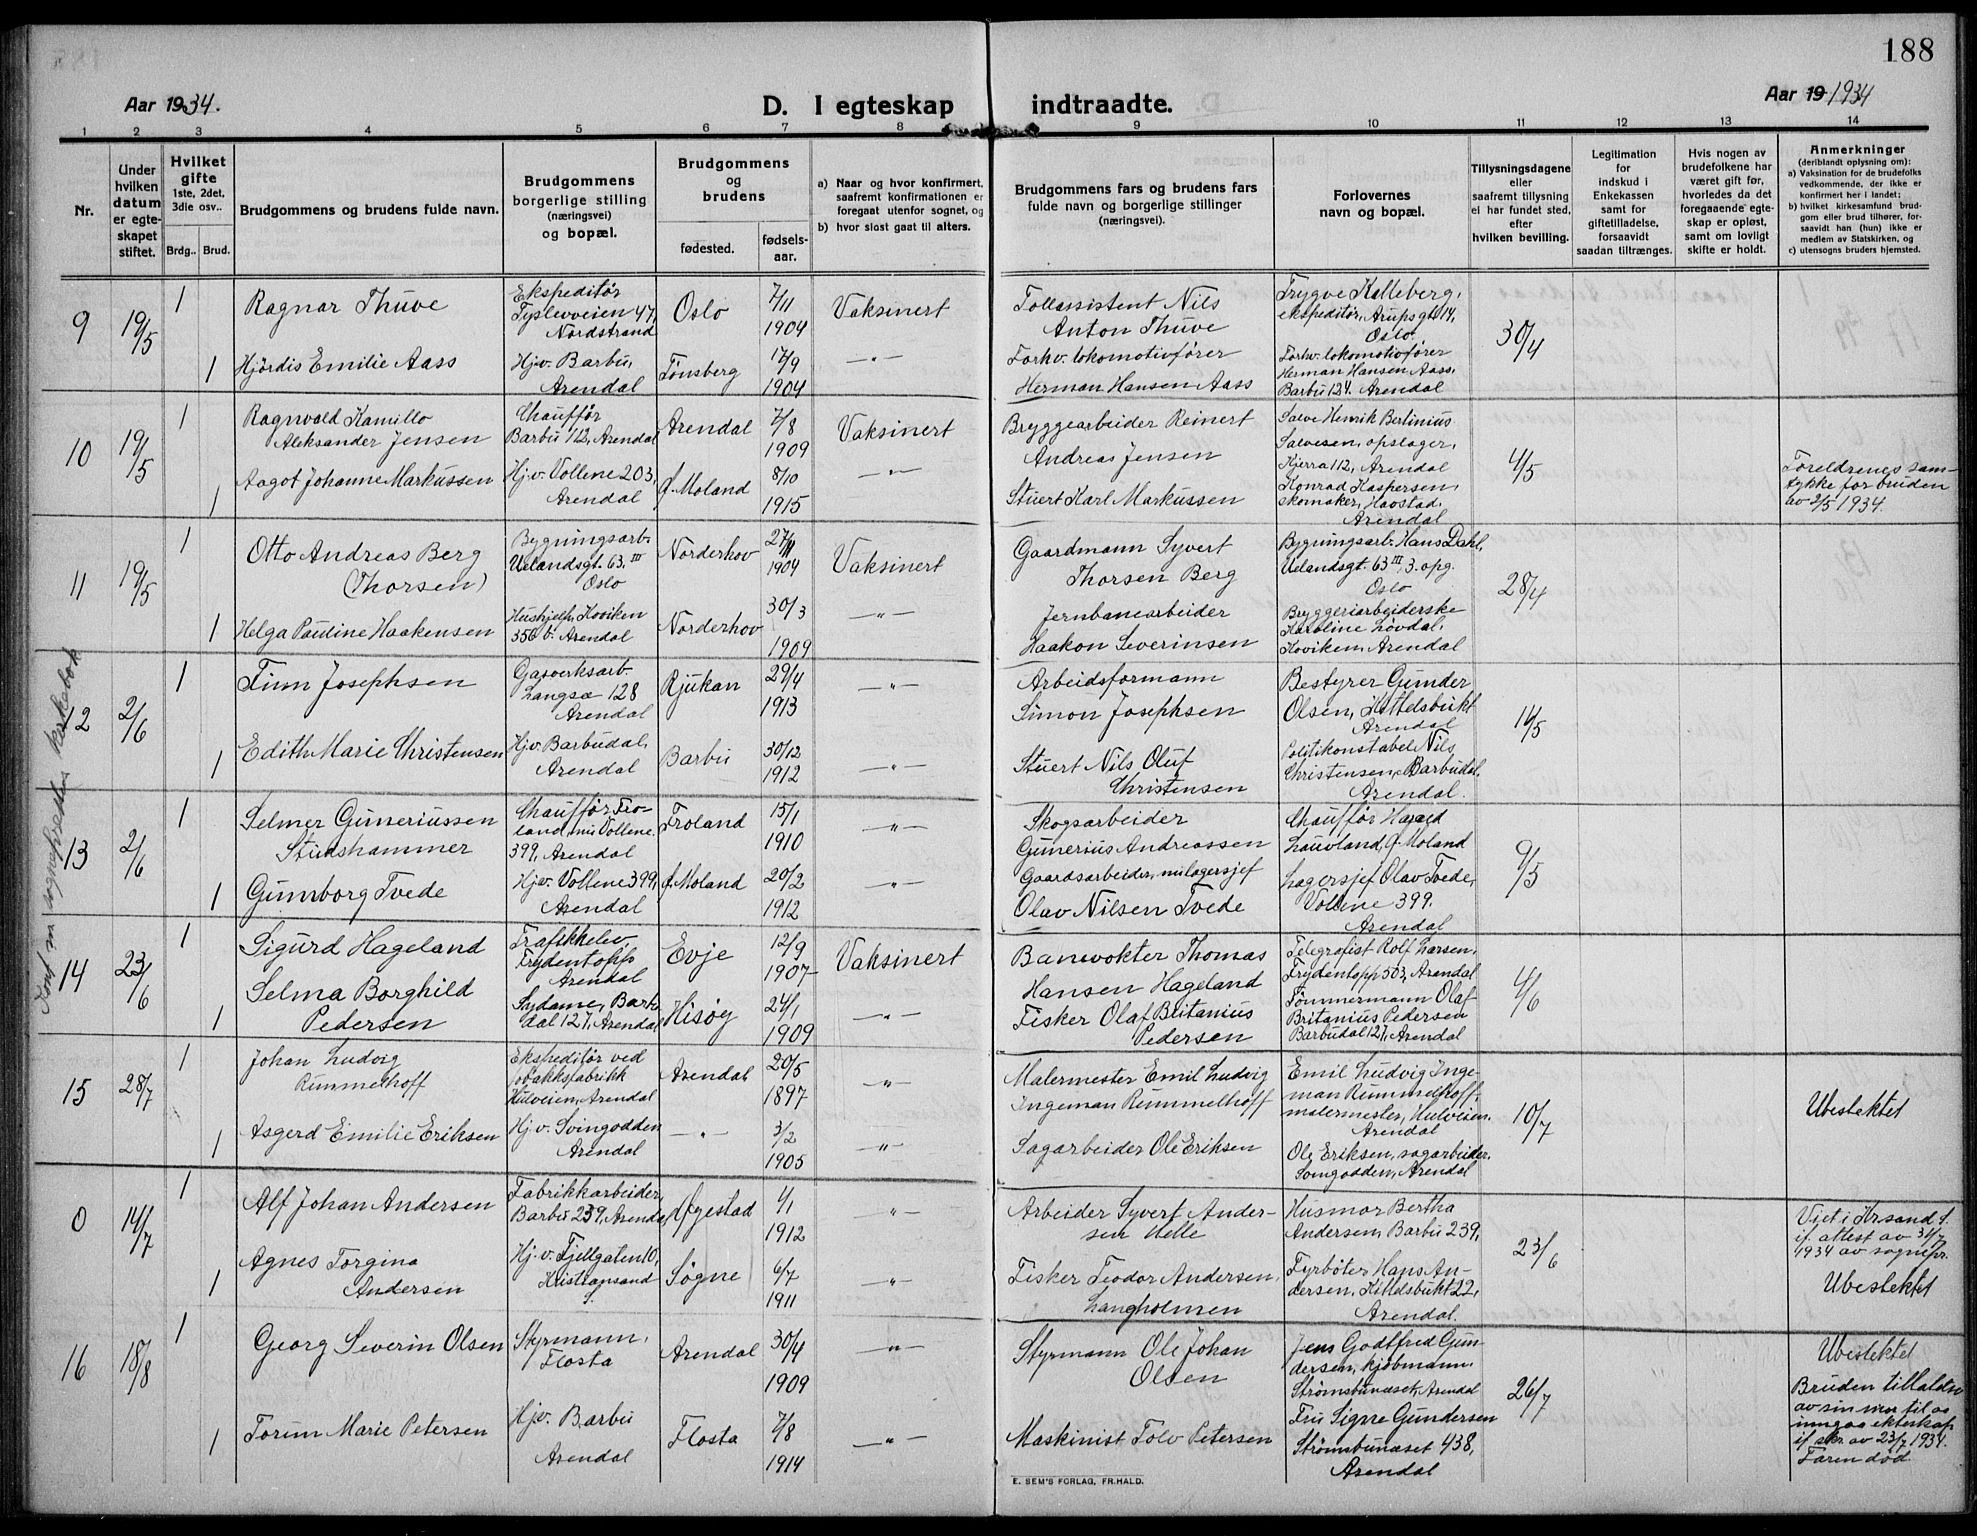 188
Aar 1934.
D. I egteskap indtraadte.
Aar 19 1934
1 2 3 4 5 6 7 8 9 10 11 12 13 14
Nr.
Under hvilken datum er egteskapet stiftet.
Hvilket gifte 1ste, 2det, 3die osv..
Brdg.. Brud.
Brudgommens og brudens fulde navn.
Brudgommens borgerlige stilling (næringsvei) og bopæl.
Brudgommens og brudens
fødested.
fødsels-aar.
a) Naar og hvor konfirmert, saafremt konfirmationen er foregaat utenfor sognet, og
b) hvor sidst gaat til alters.
Brudgommens fars og brudens fars fulde navn og borgerlige stillinger (næringsvei).
Forlovernes navn og bopæl.
Tillysningsdagene eller saafremt tillysning ei har fundet sted, efter hvilken bevilling.
Legitimation for indskud i Enkekassen samt for giftetilladelse, forsaavidt saadan tiltrænges.
Hvis nogen av brudefolkene har været gift før, hvorledes da det foregaaende egteskap er opløst, samt om lovligt skifte er holdt.
Anmerkninger (deriblandt oplysning om):
a) Vaksination for de brudefolks vedkommende, der ikke er konfirmert her i landet;
b) hvilket kirkesamfund brudgom eller brud tilhører, forsaavidt han (hun) ikke er medlem av Statskirken, og
c) utensogns bruders hjemsted.
9 19/5 1 Ragnar Thuve
Ekspeditør Tyslevveien 47, Nordstrand
Oslo 7/11 1904 Vaksinert
Tollassistent Nils Anton Thuve
Trygve Kalleberg, ekspeditør, Arupsgt 14, Oslo.
30/4
1 Hjørdis Emilie Aass
Hj.v. Barbu, Arendal
Tønsberg 17/9 1904 —"—
Forhv. lokomotivfører Herman Hansen Aass
Forhv. lokomotivfører Herman Hansen Aass, Barbu 124. Arendal
10 19/5 1 Ragnvald Kamillo Aleksander Jensen
Chauffør Barbu 112, Arendal
Arendal 7/8 1909 Vaksinert
Bryggearbeider Reinert Andreas Jensen
Salve Henrik Bertinius Salvesen, opslager, Kjerra 112, Arendal
4/5
1 Aagot Johanne Markussen
Hj.v. Vollene 203, Arendal
Ø. Moland 8/10 1915 —"—
Stuert Karl Markussen
Konrad Kaspersen, skomaker, Havstad, Arendal
Foreldrenes samtykke for bruden av 2/5 1934.
11 19/5 1 Otto Andreas Berg (Thorsen)
Bygningsarb. Uelandsgt. 63.III Oslo
Norderhov 27/11 1904 Vaksinert
Gaardmann Syvert Thorsen Berg
Bygningsarb. Hans Dahl, Uelandsgt. 63 III, 3. opg. Oslo
28/4
1 Helga Pauline Haakensen
Hushjelp, Koviken 350 b. Arendal
Norderhov 30/3 1909 —"—
Jernbanearbeider Haakon Severinsen
Bryggeriarbeiderske Karoline Løvdal, Koviken, Arendal
12 2/6 1 Finn Josephsen
Gasverksarb. Langsæ 128 Arendal
Rjukan 29/4 1913 —"—
Arbeidsformann Simon Josephsen
Bestyrer Gunder Olsen, Kittelsbukt Arendal
1 Edith Marie Christensen
Hj.v. Barbudal, Arendal
Barbu 30/12 1912 —"—
Stuert Nils Oluf Christensen
Politikonstabel Nils Christensen, Barbudal, Arendal.
13 2/6 1 Selmer Guneriussen Studshammer
Chauffør, Froland, nu Vollene 399, Arendal
Froland 15/1 1910 —"—
Skogsarbeider Gunerius Andreassen
Chauffør Harald Lauvland, Ø. Moland
9/5
1 Gunvborg Tvede
Hj.v. Vollene 399, Arendal
Ø. Moland 20/2 1912 —"—
Gaardsarbeider, nu lagersjef Olav Nilsen Tvede
Lagersjef Olav Tvede, Vollene 399. Arendal
14 23/6 1 Sigurd Hageland
Trafikkelev, Frydentopp Arendal
Evje 12/9 1907 Vaksinert
Banevokter Thomas Hansen Hageland
Telegrafist Rolf Larsen, Frydentopp 503, Arendal
4/6
1 Selma Borghild Pedersen
Sydame, Barbudal 127, Arendal
Hisøy 24/1 1909 —"—
Fisker Olaf Britanius Pedersen
Tømmermann Olaf Britanius Pedersen Barbudal 127, Arendal
15 28/7 1 Johan Ludvig Rummelhoff
Ekspeditør ved tobakksfabrikk Hulveien, Arendal
Arendal 20/5 1897 —"—
Malermester Emil Ludvig Ingeman Rummelhoff
Emil Ludvig Ingeman Rummelhoff, malermester, Hulveien. Arendal
10/7
Ubeslektet
1 Asgerd Emilie Eriksen
Hj.v. Svingodden Arendal
—"— 3/2 1905 —"—
Sagarbeider Ole Eriksen
Ole Eriksen, sagarbeider. Svingodden, Arendal
0 14/7 1 Alf Johan Andersen
Fabrikkarbeider, Barbu 239, Arendal
Øyestad 4/1 1912 —"—
Arbeider Syvert Andersen Helle
Husmor Bertha Andersen, Barbu 239,
23/6
Viet i Krsand S. if. attest av 31/7 1934 av sognepr.
Ubeslektet
1 Agnes Torgina Andersen
Hj.v. Fjellgaten 10, Kristiansand S.
Søgne 6/7 1911 —"—
Fisker Teodor Andersen, Langholmen
Fyrbøter Hans Andersen, Kittelsbukt 22, Arendal.
16 18/8 1 Georg Severin Olsen
Styrmann, Flosta
Arendal 30/4 1909 —"—
Styrmann Ole Johan Olsen
Jens Godtfred Gundersen, kjøbmann, Strømsbunæset, Arendal
26/7
Ubeslektet
Bruden tillatelse av sin mor til aa inngaa ekteskap if skr. av 23/7 1934. Faren død
1 Torun Marie Petersen
Hj.v. Barbu Arendal
Flosta 7/8 1914 —"—
Maskinist Tolv Petersen
Fru Signe Gundersen Strømsbunæset 438, Arendal
E. SEM'S FORLAG, FR.HALD.